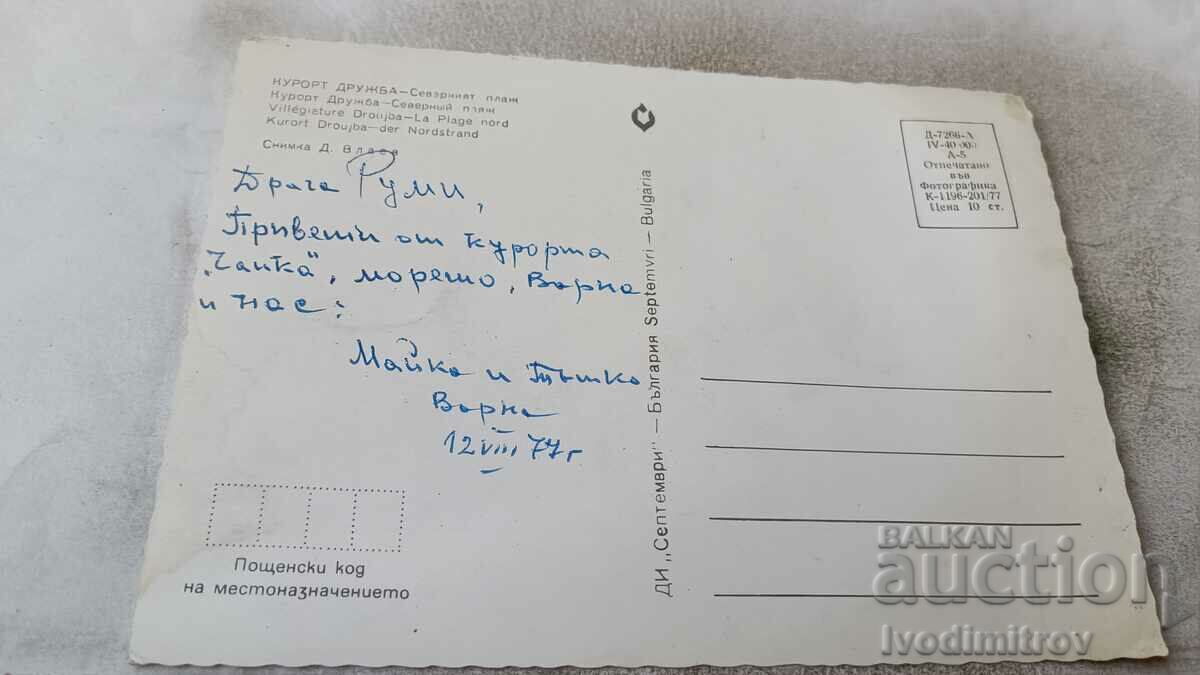 КУРОРТ ДРУЖБА—Северният плаж
Курорт Дружба—Северный пляж
Villégiature Droujba—La Plage nord
Kurort Droujba—der Nordstrand
Снимка Д. Влаев
Драга Руми,
Привети от курорта
„Чайка", морето, Варна
и нас:
Майка и Татко
Варна
12 VIII 77 г
Пощенски код
на местоназначението
ДИ „Септември" — България Septemvri — Bulgaria
Д-7266-А
IV-40 000
А-5
Отпечатано
във
Фотографика
К-1196-201/77
Цена 10 ст.
BALKAN
auction
Ivodimitrov